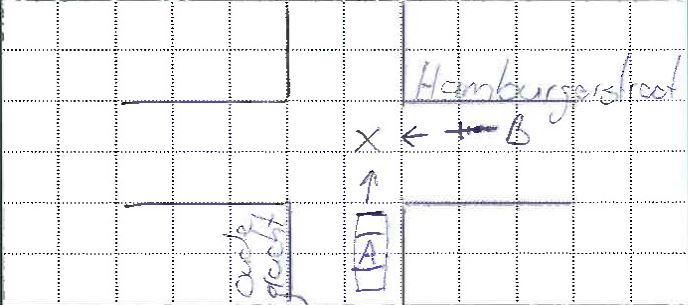 Hamburgerstraat
X ← B
A
oude
gracht